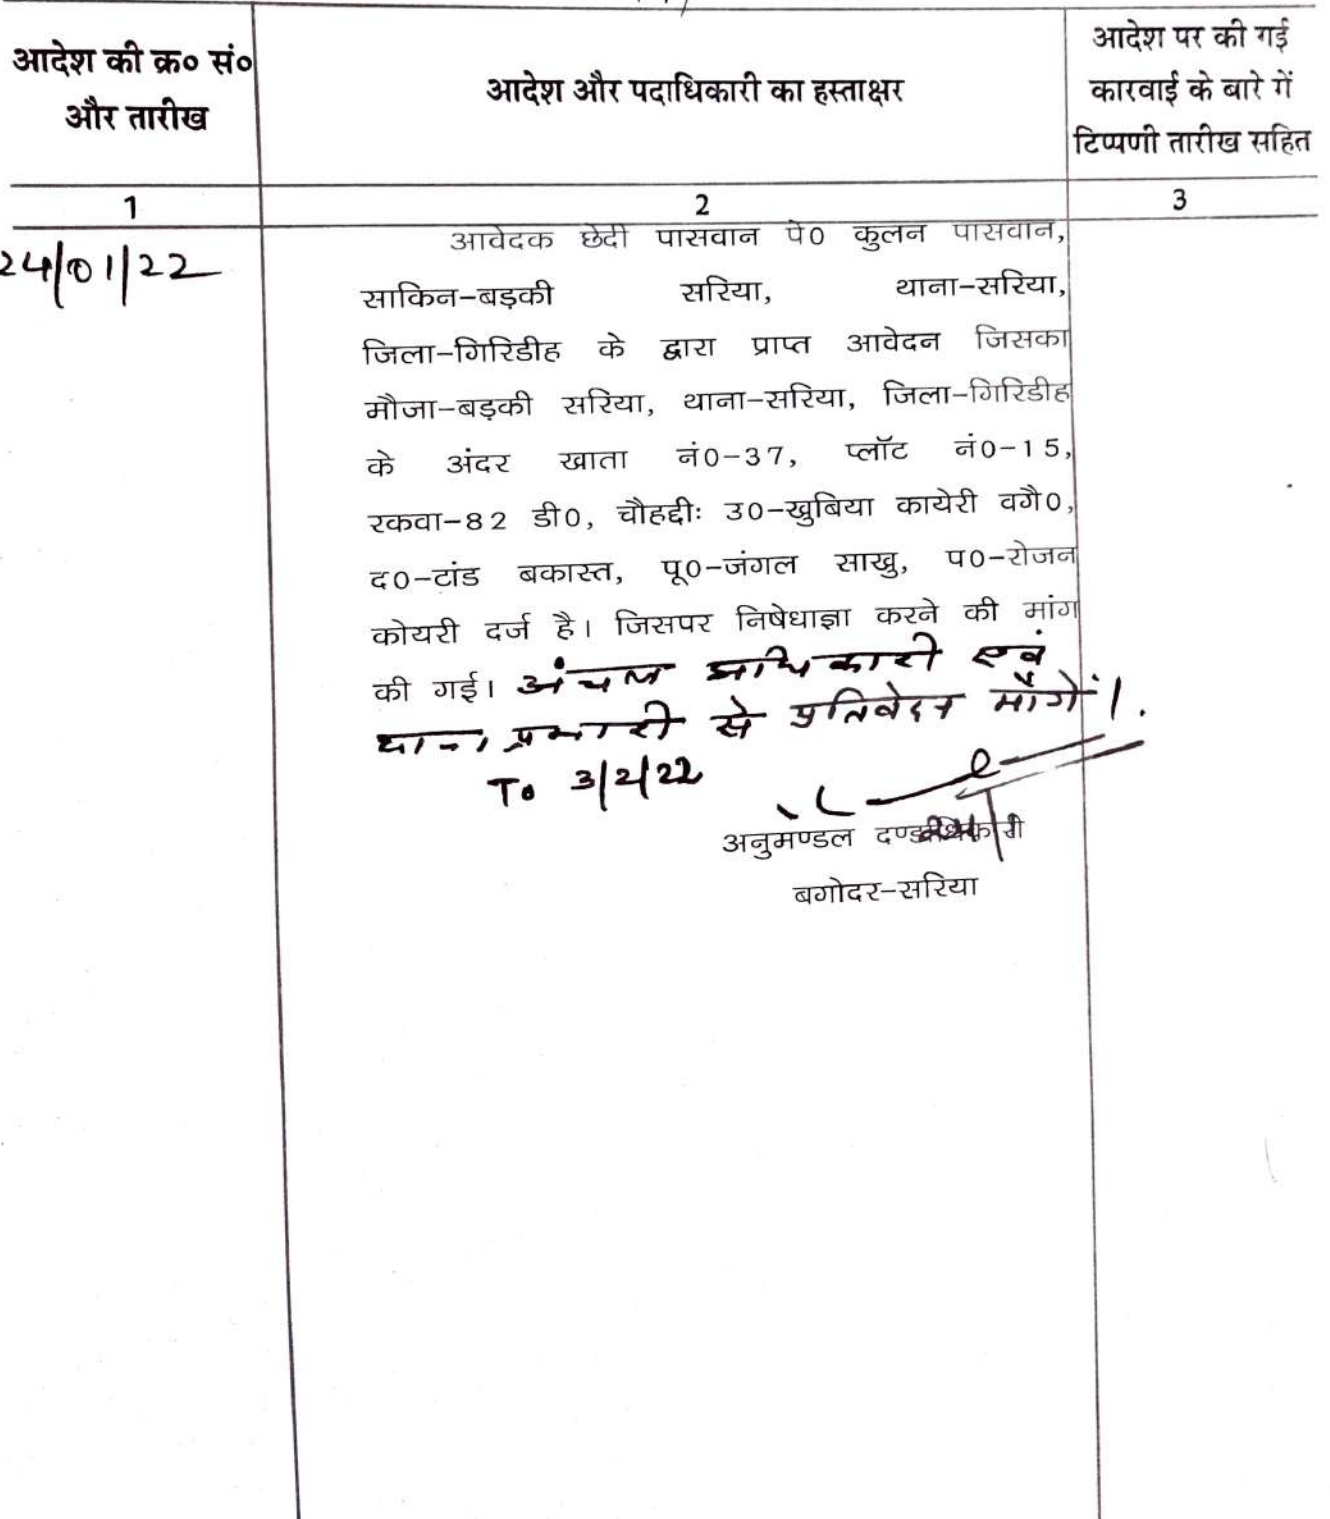 आदेश की क्र० सं०
और तारीख
आदेश और पदाधिकारी का हस्ताक्षर
आदेश पर की गई
कारवाई के बारे में
टिप्पणी तारीख सहित
1
2
3
24/01/22
आवेदक छेदी पासवान पे0 कुलन पासवान,
साकिन-बड़की सरिया, थाना-सरिया,
जिला-गिरिडीह के द्वारा प्राप्त आवेदन जिसका
मौजा-बड़की सरिया, थाना-सरिया, जिला-गिरिडीह
के अंदर खाता नं0-37, प्लॉट नं0-15,
रकवा-82 डी0, चौहद्दीः उ0-खुबिया कायेरी वगै0,
द0-टांड बकास्त, पू0-जंगल साखु, प0-रोजन
कोयरी दर्ज है। जिसपर निषेधाज्ञा करने की मांग
की गई। अंचल अधिकारी एवं
थाना प्रभारी से प्रतिवेदन माँगें।
To 3/2/22
अनुमण्डल दण्डाधिकारी
बगोदर-सरिया